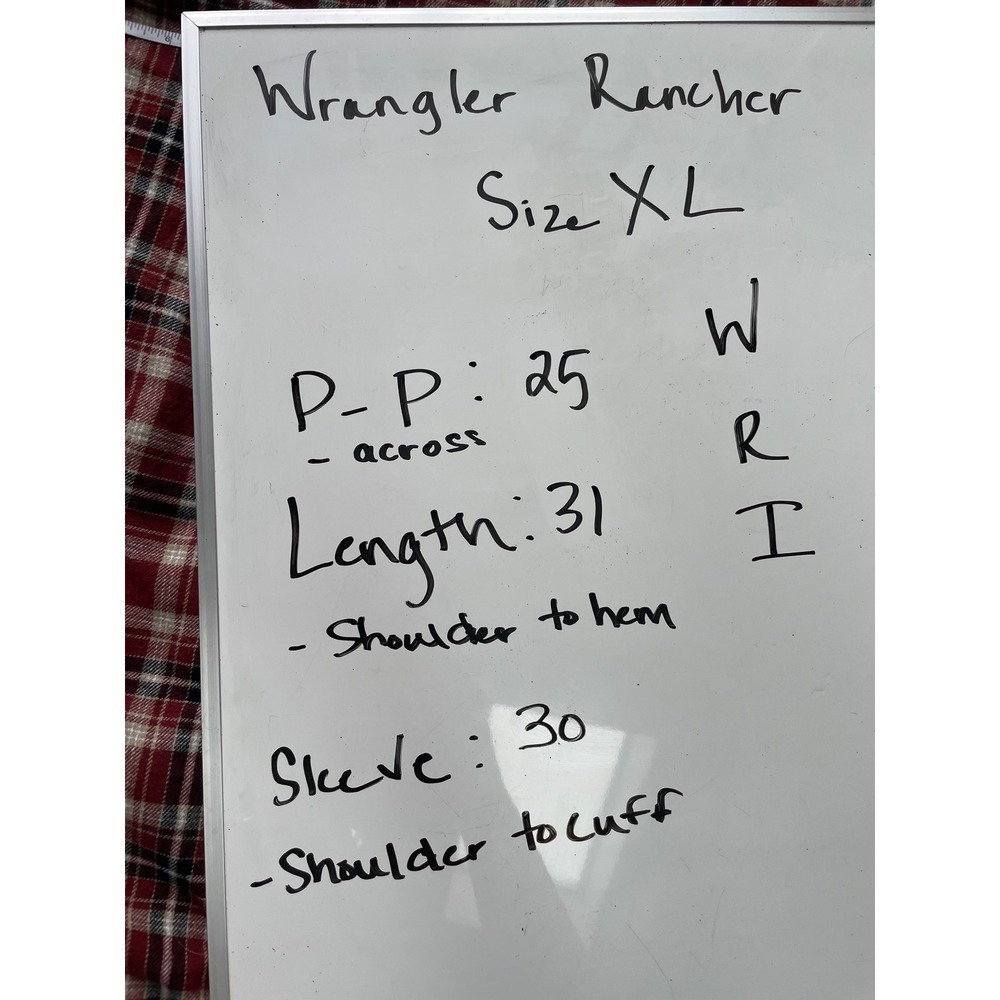 Wrangler Rancher
Size XL
W
P-P: 25
- across
R
Length: 31
I
- Shoulder to hem
Sleeve: 30
- Shoulder to cuff